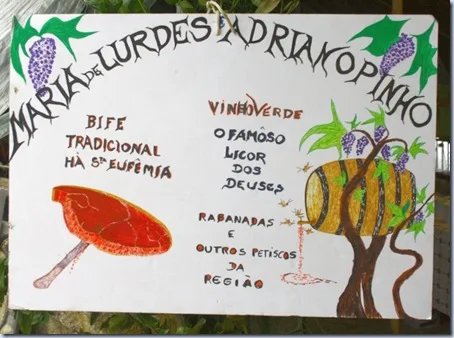 MARIA DE LURDES E ADRIANO PINHO
BIFE
TRADICIONAL
HÀ Sta EUFÊMIA
VINHO VERDE
O FAMÔSO
LICOR
DOS
DEUSES
RABANADAS
E
OUTROS PETISCOS
DA
REGIÃO